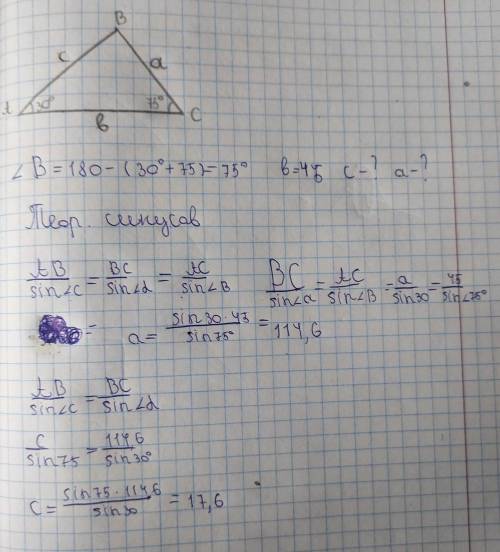 B
c a
A 30° 75° C
в
∠B=180-(30°+75)=75° в=4,5 c-? a-?
Теор. синусов
AB/sin∠c = BC/sin∠α = AC/sin∠B
BC/sin∠a = AC/sin∠B = a/sin30 = 45/sin∠75°
= a = sin30·45/sin75° = 114,6
AB/sin∠c = BC/sin∠α
c/sin75 = 114,6/sin30°
C = sin75·114,6/sin30 = 17,6